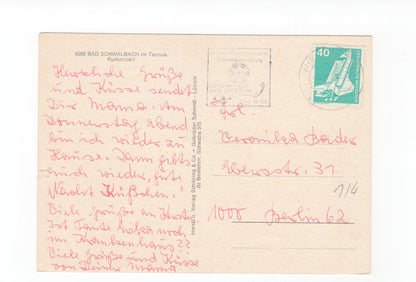 6208 BAD SCHWALBACH im Taunus
Kurkonzert
Herzliche Grüße
und Küsse sendet
Dir Mama. Am
Donnerstag abend
bin ich wieder zu
Hause. Dann gibts
auch wieder „gute
Nacht Küßchen."
Viele Grüße an
Ist Tante noch
im Krankenhaus??
Viele Grüße und Küsse
von Deine Mama
Herst. u. Verlag Schöning & Co + Gebrüder Schmidt · Lübeck
40
Frl.
Veronika
31
1/4
1000 Berlin 62